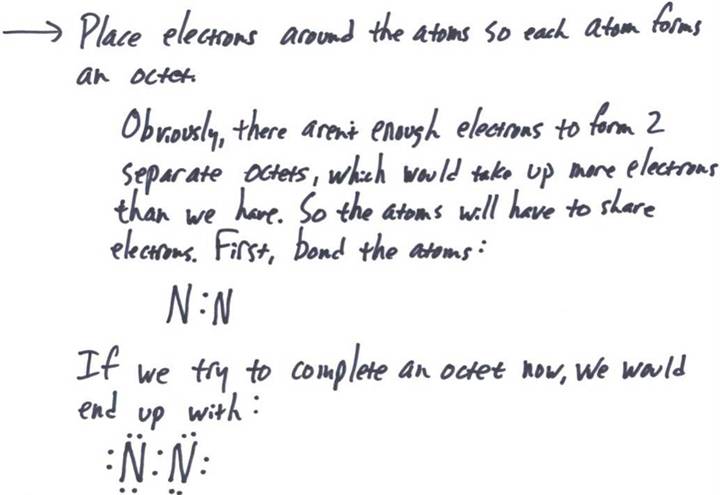 → Place electrons around the atoms so each atom forms
an octet.
Obviously, there aren't enough electrons to form 2
separate octets, which would take up more electrons
than we have. So the atoms will have to share
electrons. First, bond the atoms:
N:N
If we try to complete an octet now, we would
end up with:
:N̤̈:N̤̈: